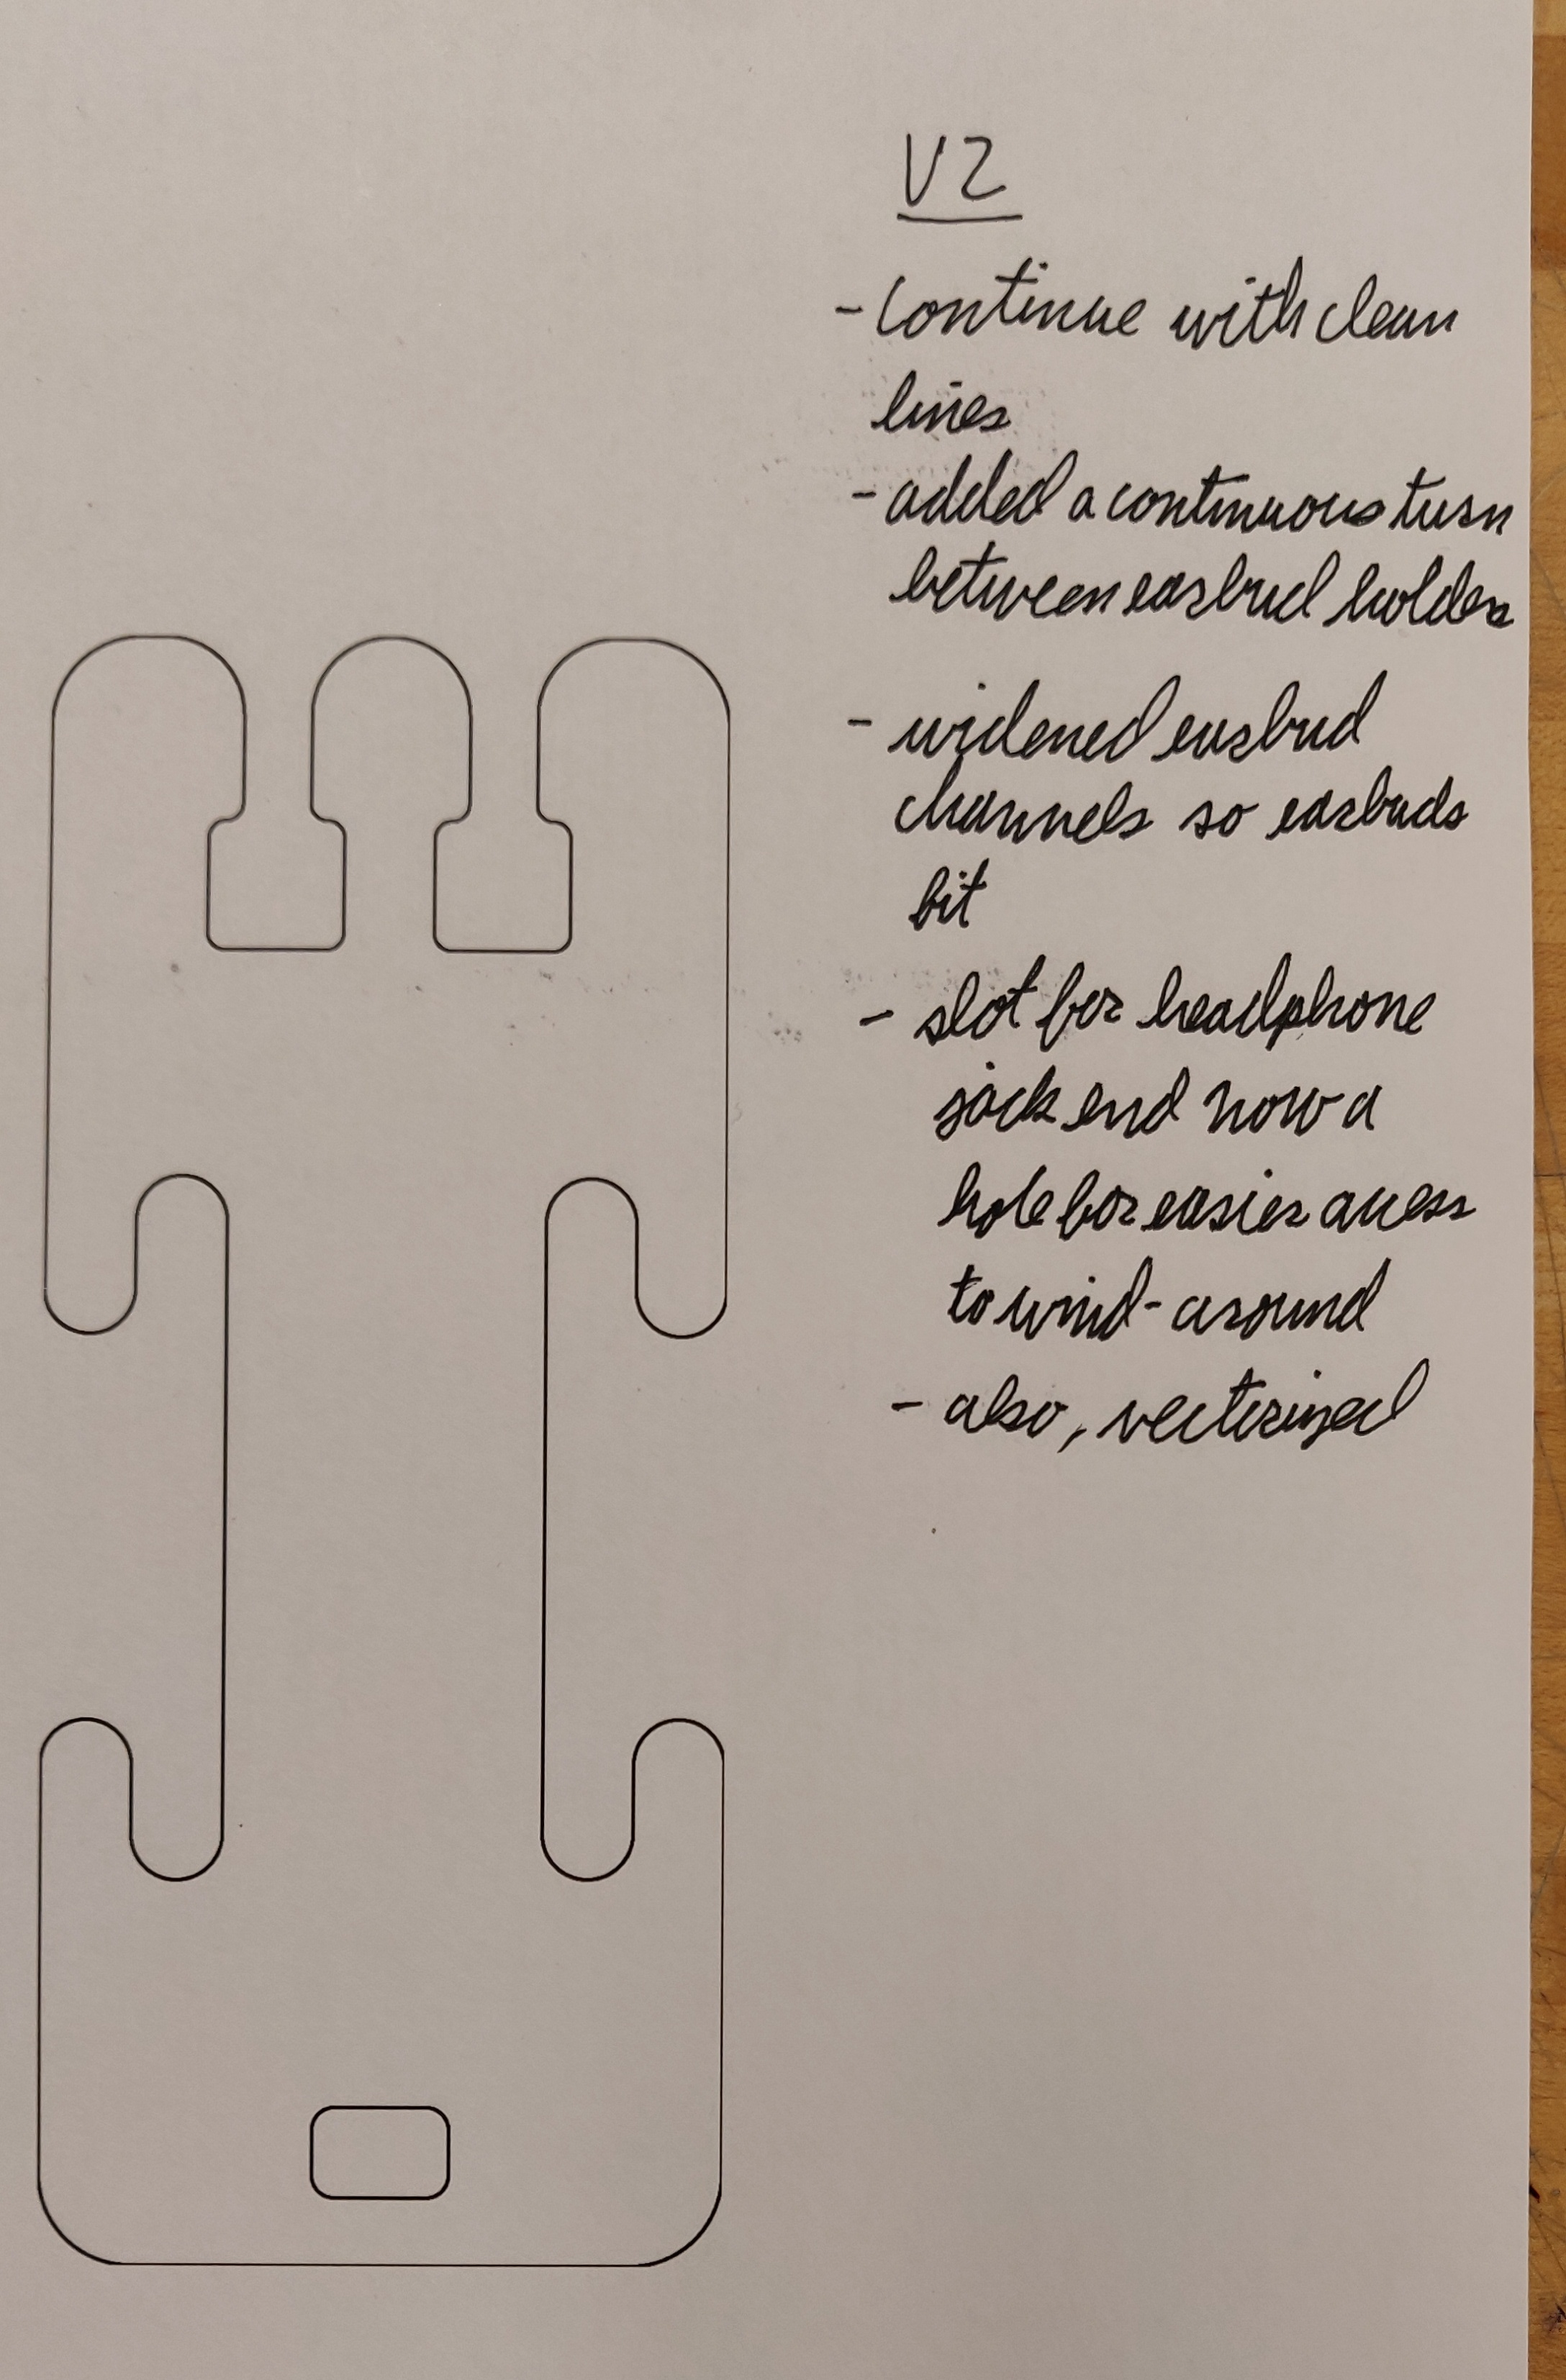 V2
- continue with clean
lines
- added a continuous turn
between earbud holders
- widened earbud
channels so earbuds
fit
- slot for headphone
jack end now a
hole for easier access
to wind-around
- also, vectorized